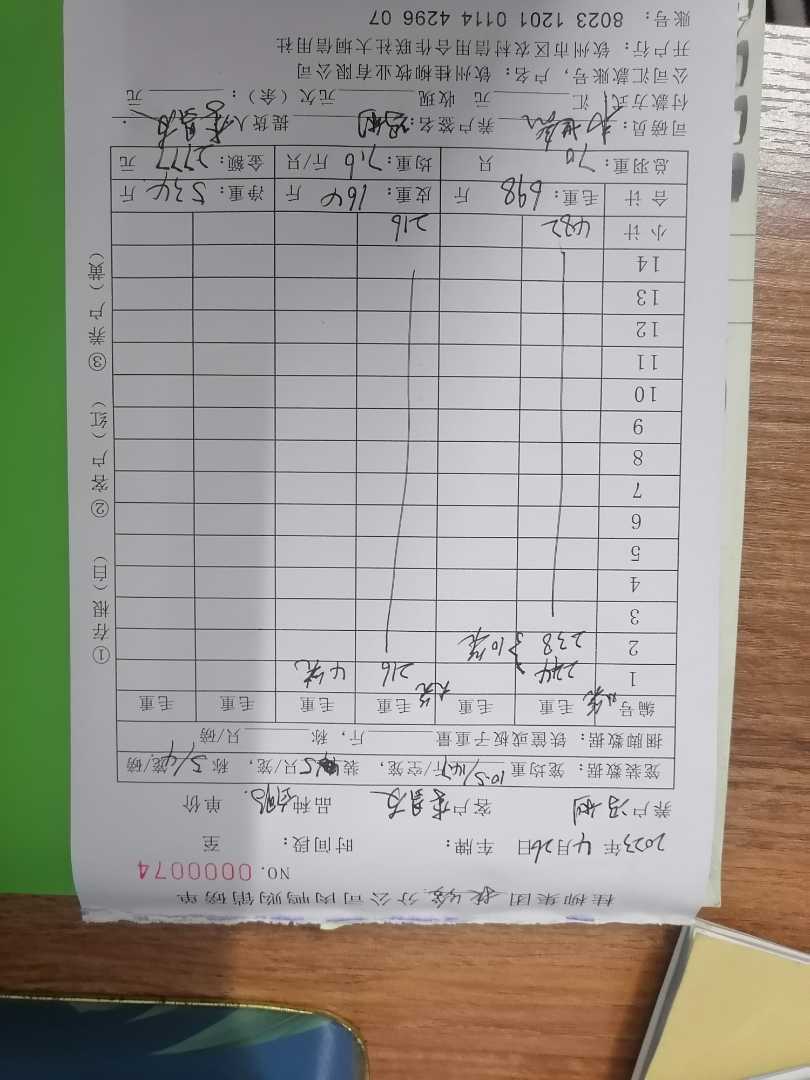 桂柳集团 分公司肉鸭购销磅单
NO. 0000074
2023年 4月26日 车牌: 时间段: 至
养户 冯刚 客户 品种 单价
笼装数据: 笼均重 10.5/14斤/空笼, 装 5只/笼, 称 5/4笼/磅
捆脚数据: 铁筐或板子重量 斤, 称 只/磅
编号 毛重 毛重 毛重 毛重 毛重 毛重
1 244 216 4笼
2 238 }10笼
3
4
5
6
7
8
9
10
11
12
13
14
小计 482 216
合计 毛重: 698 斤 皮重: 164 斤 净重: 534 斤
总羽重: 70 只 均重: 7.6 斤/只 金额: 2777 元
司磅员: 养户签名: 冯刚 提货人
付款方式: 汇 元 收现 元 欠(余): 元
公司汇款账号, 户名: 钦州桂柳牧业有限公司
开户行: 钦州市区农村信用合作联社大垌信用社
账号: 8023 1201 0114 4296 07
①存根(白) ②客户(红) ③养户(黄)